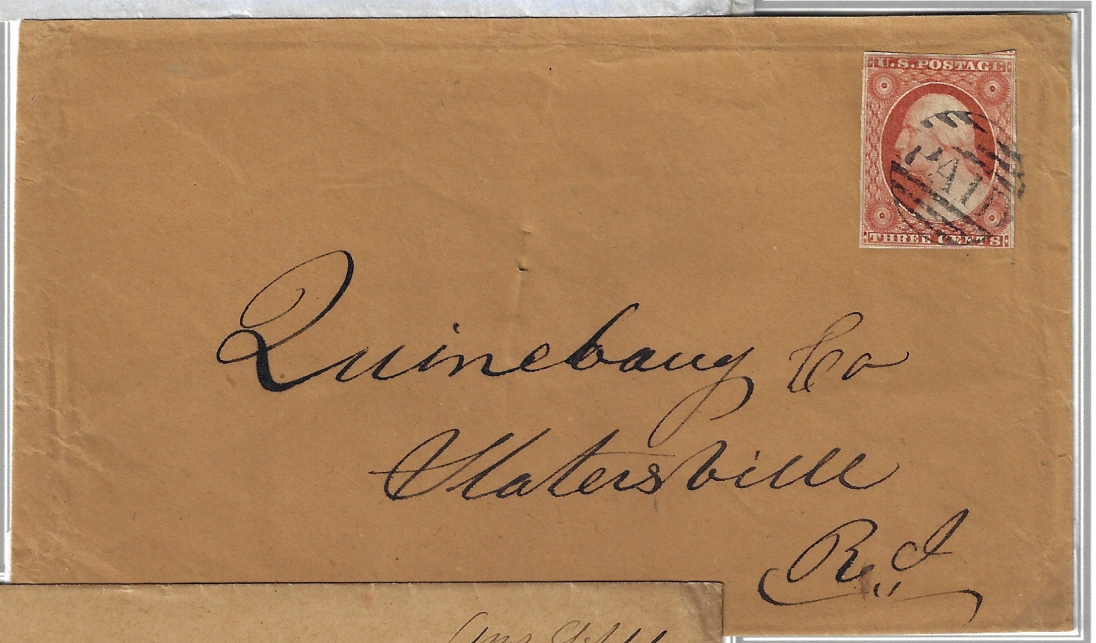 U.S. POSTAGE
PAI
THREE CENTS
Quinebaug Co
Slatersville
R.I